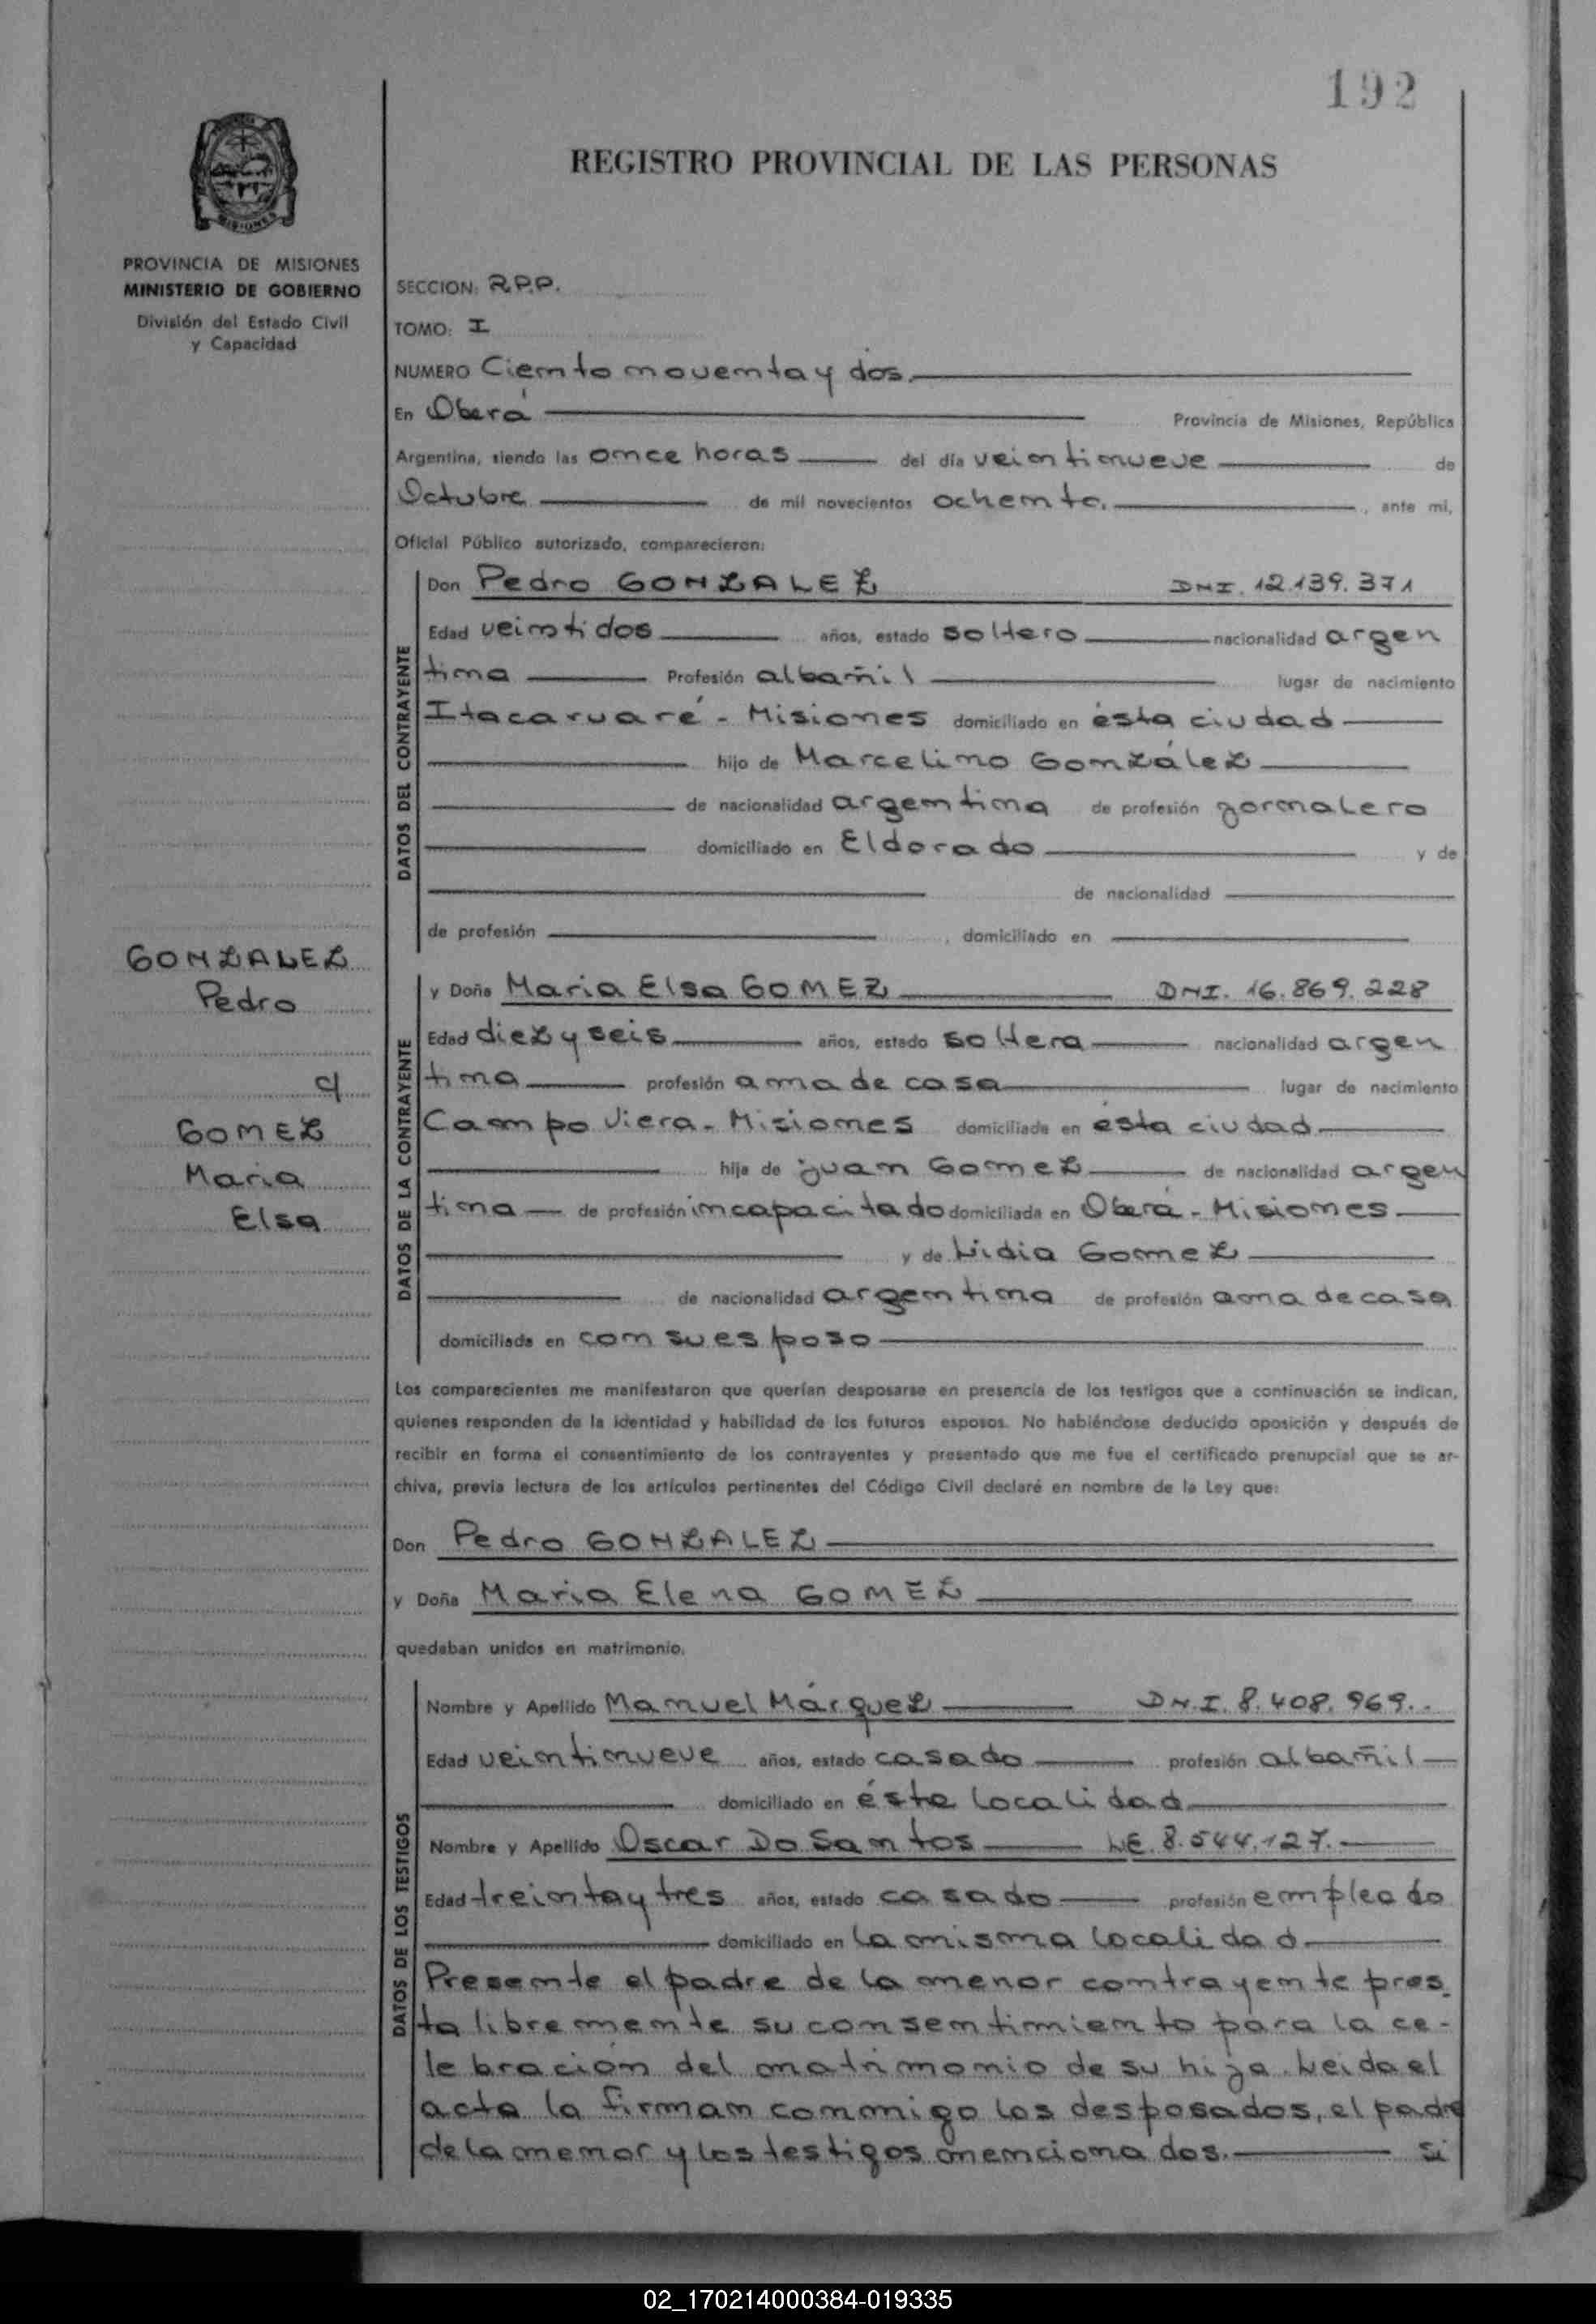 192
REGISTRO PROVINCIAL DE LAS PERSONAS
MISIONES
PROVINCIA DE MISIONES
MINISTERIO DE GOBIERNO
División del Estado Civil
y Capacidad
SECCION: R.P.P.
TOMO: I
NUMERO Ciento noventa y dos.
En Oberá Provincia de Misiones, República
Argentina, siendo las once horas del día veintinueve de
Octubre de mil novecientos ochenta. , ante mi,
Oficial Público autorizado, comparecieron:
DATOS DEL CONTRAYENTE
Don Pedro GONZALEZ DNI. 12.139.371
Edad veintidos años, estado soltero nacionalidad argen
tina Profesión albañil lugar de nacimiento
Itacaruaré - Misiones domiciliado en ésta ciudad
hijo de Marcelino González
de nacionalidad argentina de profesión jornalero
domiciliado en Eldorado y de
de nacionalidad
de profesión , domiciliado en
GONZALEZ
Pedro
c/
GOMEZ
Maria
Elsa
DATOS DE LA CONTRAYENTE
y Doña Maria Elsa GOMEZ DNI. 16.869.228
Edad diez y seis años, estado soltera nacionalidad argen
tina profesión ama de casa lugar de nacimiento
Campo Viera - Misiones domiciliada en ésta ciudad
hija de Juan Gomez de nacionalidad argen
tina de profesión incapacitado domiciliada en Oberá - Misiones
y de Lidia Gomez
de nacionalidad argentina de profesión ama de casa
domiciliada en con su esposo
Los comparecientes me manifestaron que querían desposarse en presencia de los testigos que a continuación se indican,
quienes responden de la identidad y habilidad de los futuros esposos. No habiéndose deducido oposición y después de
recibir en forma el consentimiento de los contrayentes y presentado que me fue el certificado prenupcial que se ar-
chiva, previa lectura de los artículos pertinentes del Código Civil declaré en nombre de la Ley que:
Don Pedro GONZALEZ
y Doña Maria Elena GOMEZ
quedaban unidos en matrimonio.
DATOS DE LOS TESTIGOS
Nombre y Apellido Manuel Márquez D.N.I. 8.408.969..
Edad veintinueve años, estado casado profesión albañil
domiciliado en ésta localidad
Nombre y Apellido Oscar Do Santos LE. 8.544.127.
Edad treinta y tres años, estado casado profesión empleado
domiciliado en la misma localidad
Presente el padre de la menor contrayente pres_
ta libremente su consentimiento para la ce-
lebración del matrimonio de su hija. Leida el
acta la firman conmigo los desposados, el padre
de la menor y los testigos mencionados. Si
02_170214000384-019335